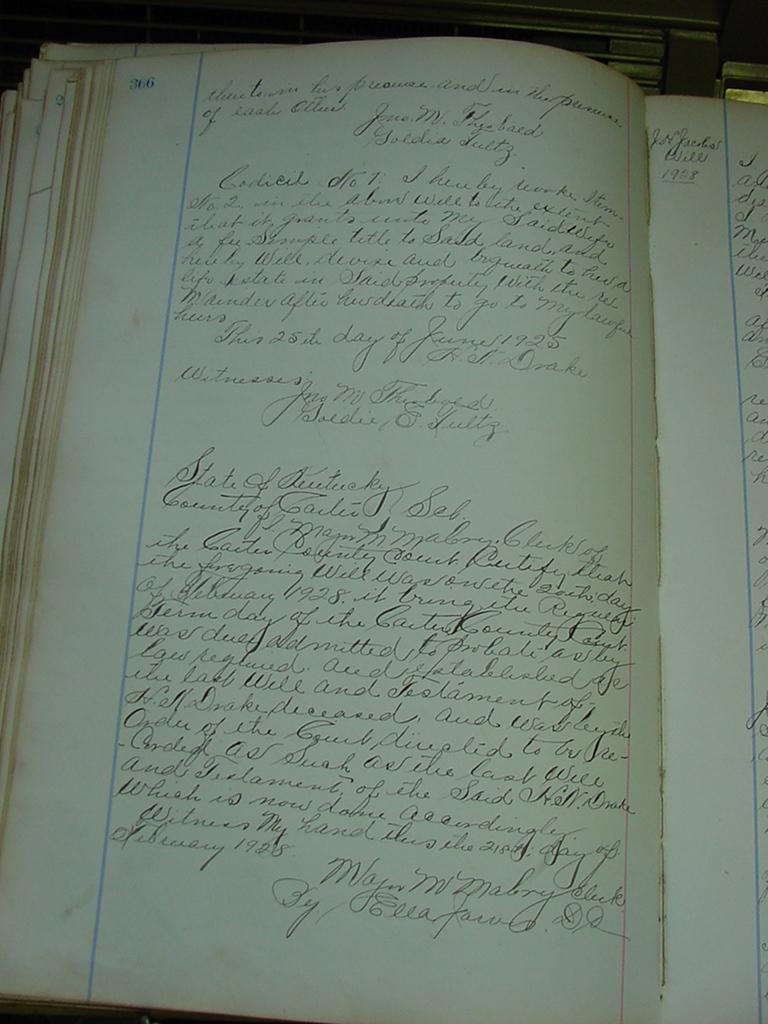 366
thereto in his presence and in the presence
of each other.
Jno. M. Theobald
Goldie Fultz
Codicil No 1; I hereby revoke Item
No. 2, in the above Will to the extent
that it grants unto my Said Wife
a fee Simple title to Said land, and
hereby Will, devise and bequeath to her a
life Estate in Said property With the re
Mainder after her death to go to My lawful
heirs
This 25th day of June 1925
H. N. Drake
Witnesses;
Jno M Theobald
Goldie E. Fultz
State of Kentucky
County of Carter Sct.
I, Major M Mabry, Clerk of
the Carter County Court Certify that
the foregoing Will was on the 20th day
of February 1928. it being the Regular
Term day of the Carter County Court
was duly admitted to Probate as by
law required. and established as
the last Will and Testament of
H. N. Drake, deceased, and was by the
Order of the Court, directed to be re-
-Corded as Such as the last Will
and Testament, of the Said H. N. Drake
Which is now done accordingly
Witness My hand this the 21st. day of
February 1928
Major M Mabry Clerk
By, Ella D C
J. H. Jacobs
Will
1928